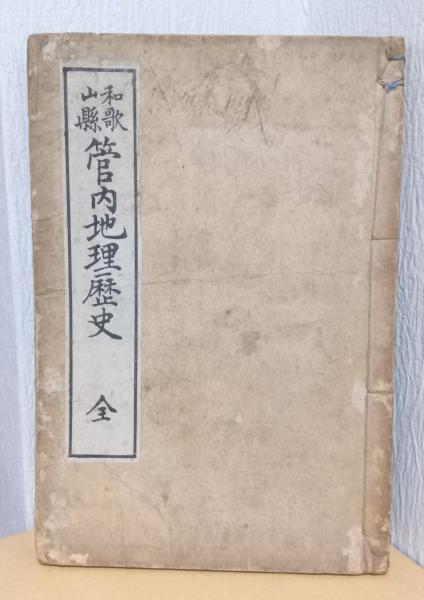 和歌
山縣
管内地理歴史 全